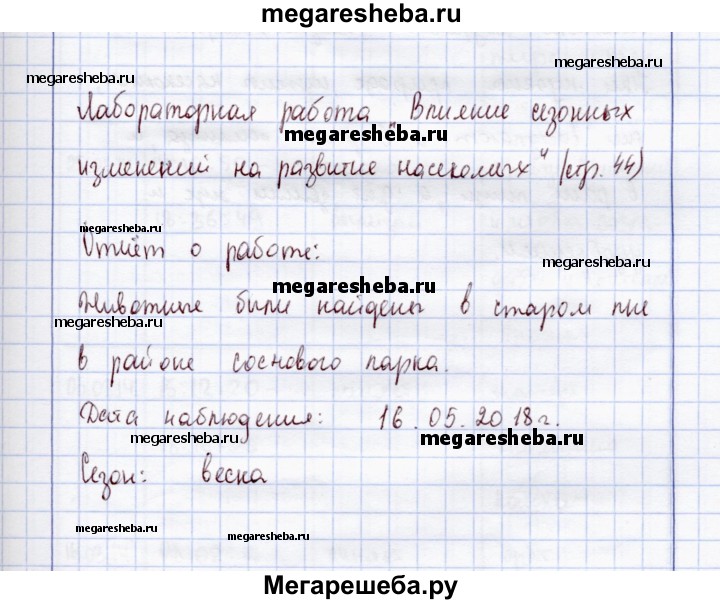 megaresheba.ru
megaresheba.ru
megaresheba.ru
Лабораторная работа „Влияние сезонных
megaresheba.ru
изменений на развитие насекомых“ (стр. 44)
megaresheba.ru
Отчёт о работе:
megaresheba.ru
megaresheba.ru
Животные были найдены в старом пне
megaresheba.ru
в районе соснового парка.
Дата наблюдения: 16.05.2018г.
megaresheba.ru
megaresheba.ru
Сезон: весна
megaresheba.ru
megaresheba.ru
Мегарешеба.ру